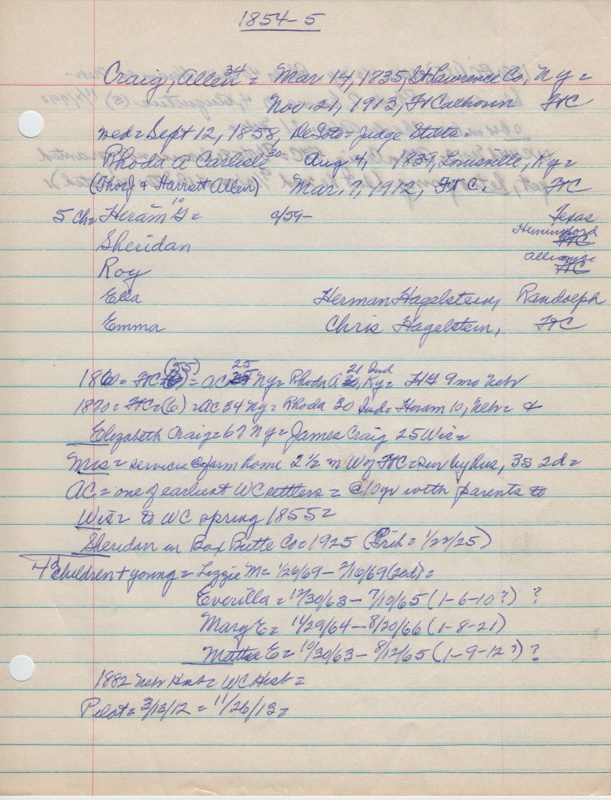 1854-5
Craig, Allen 34 = Mar 14, 1835, St Lawrence Co, Ny =
Nov. 21, 1913, Ft Calhoun FtC
wed = Sept 12, 1858, DeSoto = Judge Statts
Rhoda A Carlisle 30 Aug 4, 1839, Louisville, Ky =
(Thos J & Harrett Allen) Mar. 7, 1912, FtC. FtC
5 Ch = Hiram G 10 = c/59- Texas
Sheridan Hemingford FtC
Roy Alliance FtC
Ella Herman Hagelstein, Randolph
Emma Chris Hagelstein, FtC
1860 = FtC (55) = AC 25 Ny = Rhoda A 21 Ind Ky = HG 9 mo Nebr
1870 = FtC = (6) = AC 54 Ny = Rhoda 30 Ind = Hiram 10, Nebr = &
Elizabeth Craig = 67 Ny = James Craig 25 Wis =
Mrs = services @ farm home 2 1/2 m W of FtC = surv by hus, 3s 2d =
AC = one of earliest WC settlers = @ 10 yr with parents to
Wis = to WC spring 1855 =
Sheridan in Box Butte Co = 1925 (Trib = 1/22/25)
4 children + young = Lizzie M = 1/26/69 - 2/16/69 (20d) =
Everilla = 12/30/63 - 7/10/65 (1-6-10?) ?
Mary E = 11/29/64 - 8/20/66 (1-8-21)
Mattie E = 10/30/63 - 8/12/65 (1-9-12?) ?
1882 Nebr Hist = WC Hist =
Pilot = 3/13/12 = 11/26/13 =